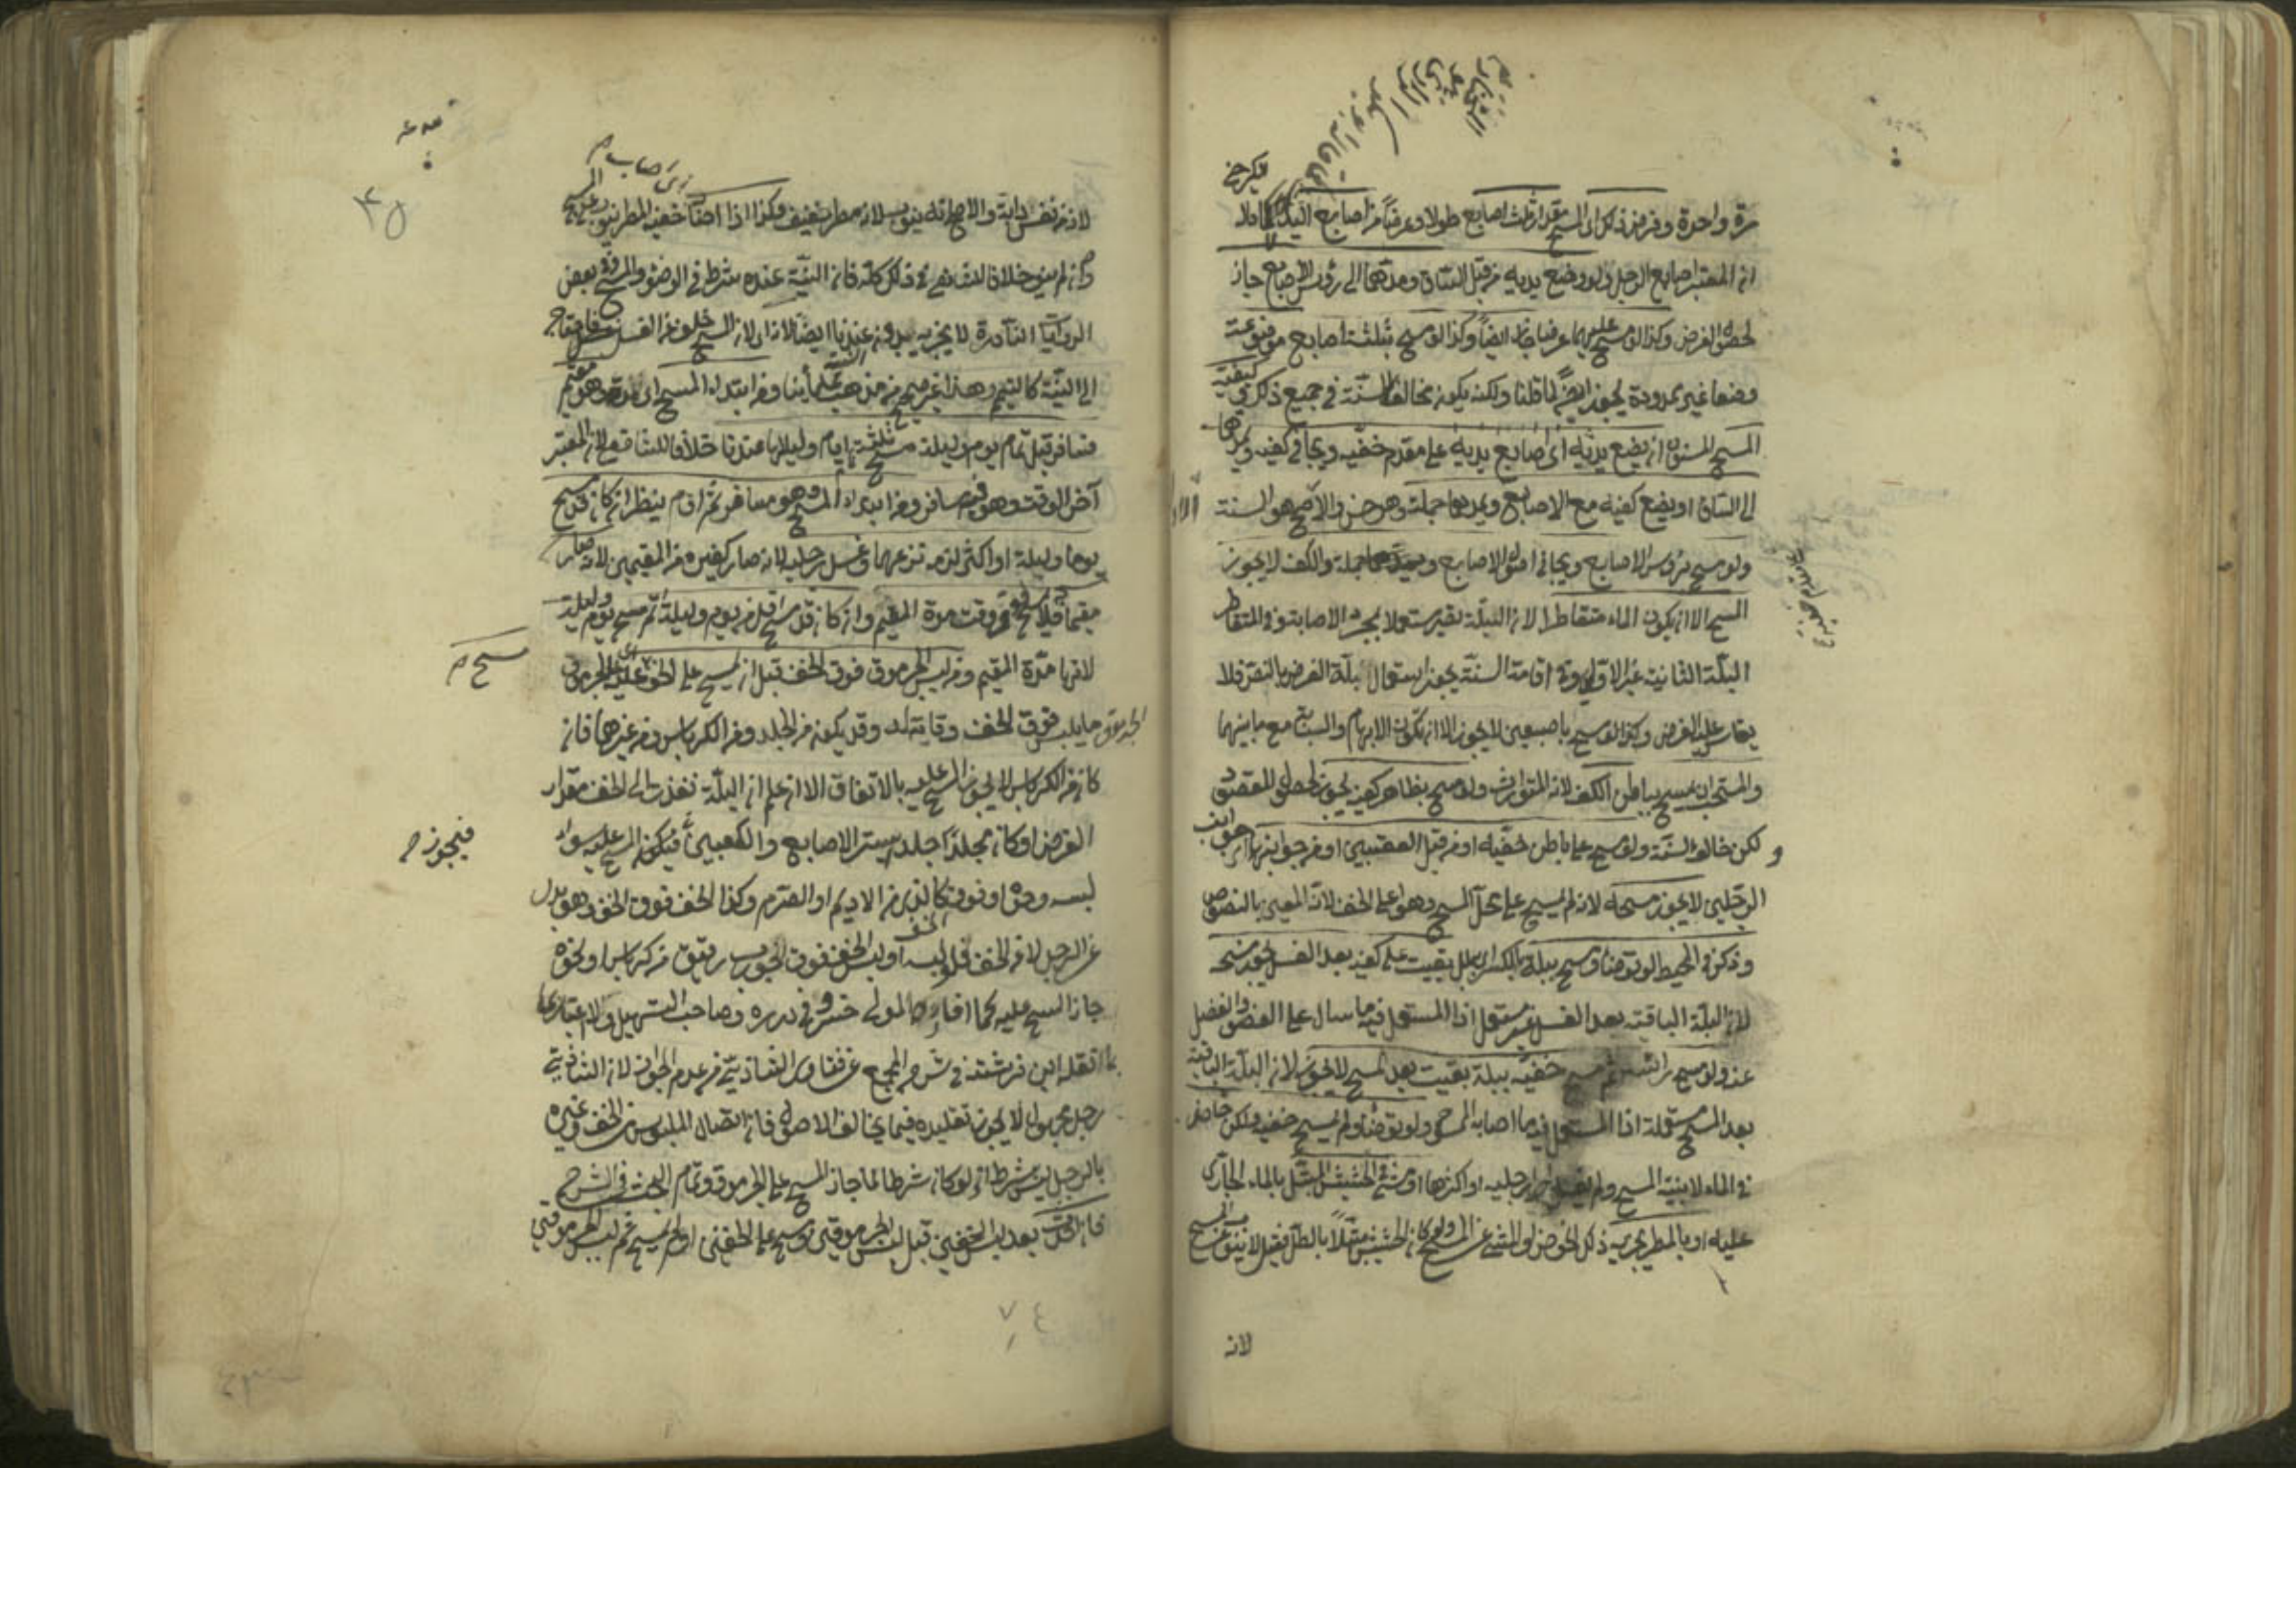 مرة واحدة وفرض ذلك اى المسح مقدار ثلث اصابع طولا وعرضا من اصابع اليد لا
ان المعتبر اصابع الرجل ولو وضع يديه من قبل الساق ومدهما الى رؤس الاصابع جاز
لحصول الفرض وكذا لو مسح عليهما عرضا جاز ايضا وكذا لو مسح بثلثة اصابع موضوعة
وضعا غير ممدودة يجوز ايضا لما قلنا ولكنه يكون مخالفا للسنة في جميع ذلك وكيفية
المسح المسنون ان يضع يديه اى اصابع يديه على مقدم خفيه ويجافي كفيه ويمدها
الى الساق او يضع كفيه مع الاصابع ويمدها جملة وهو حسن والاصح هو السنة
ولو مسح برؤس الاصابع ويجافي اصول الاصابع جملة والكف لا يجوز
المسح الا ان يكون الماء متقاطرا لان البلة تصير مستعملة بمجرد الاصابة وفي المتقاطر
البلة الثانية غير الاولى وفي اقامة السنة يجوز استعمال بلة الفرض بالنص فلا
يقاس عليه الفرض وكذا لو مسح باصبعين لا يجوز الا ان تكون الابهام والسبابة مع ما بينهما
والمستحب ان يمسح بباطن الكف لانه المتوارث ولو مسح بظاهر كفيه يجوز لحصول المقصود
و لكن خالف السنة ولو مسح على باطن خفيه او من قبل العقبين او من جوانبهما اى جوانب
الرجلين لا يجوز مسحه لانه لم يمسح على محل المسح وهو اعلى الخف لانه المعين بالنصوص
وذكر في المحيط لو توضأ ومسح ببلة بالكسر اى بلل بقيت على كفيه بعد الغسل يجوز مسحه
لان البلة الباقية بعد الغسل غير مستعمل اذ المستعمل فيه ما سال على العضو وانفصل
عنه ولو مسح رأسه ثم مسح خفيه ببلة بقيت بعد المسح لا يجوز لان البلة الباقية
بعد المسح مستعملة اذ المستعمل فيه ما اصابه الممسوح ولو توضأ ولم يمسح خفيه ولكن خاض
في الماء لا بنية المسح ولم رجليه او اكثرها او مشى في الحشيش المبتل بالماء الجارى
عليه او بالمطر يجزيه ذلك الخوض او المشي عن المسح ولو كان الحشيش مبتلا بالطل فقيل لا ينوب عن المسح
لانه
لانه من نفس دابة والاصح انه ينوب لانه مطر خفيف وكذا اذا اصاب خفيه المطر ينوب عن المسح
وان لم ينو خلافا للشافعي في ذلك كله فان النية عنده شرط في الوضوء والمسح وفي بعض
الروايات النادرة لا يجزيه بدون عندنا ايضا لان المسح خلف عن الغسل
الى النية كالتيمم وهذا غير صحيح من مذهب علمائنا ومن ابتداء المسح وهو مقيم
فسافر قبل تمام يوم وليلة مسح ثلثة ايام ولياليها عندنا خلافا للشافعي لان المعتبر
آخر الوقت وهو فيه مسافر ومن ابتداء المسح وهو مسافر ثم اقام ينظر ان كان قد مسح
يوما وليلة او اكثر لزمه نزعهما وغسل رجليه لانه صار كغيره من المقيمين لانه صار
مقيما فلا يمسح فوق وقت مدة المقيم وان كان قد مسح اقل من يوم وليلة اتم مسح يوم وليلة
لانها مدة المقيم ومن لبس الجرموق فوق الخف قبل ان يمسح على الخف مسح على الجرموق
الجرموق ما يلبس فوق الخف وقاية له وقد يكون من الجلد ومن الكرباس ومن غيرها فان
كان من الكرباس لا يجوز المسح عليه بالاتفاق الا ان علم ان البلة نفذت الى الخف مقدار
الفرض او كان مجلدا جلد يستر الاصابع والكعبين فيكون المسح عليه سواء
لبسه وحده او فوق كالذى من الاديم او الصرم وكذا الخف فوق الخف وهو بدل
عن الرجل لا عن الخف فلو لبسه او لبس الخف فوق الجورب رقيق من كرباس او نحوه
جاز المسح عليه كما افاده المولى خسرو في درره وصاحب التسهيل ولا اعتبار
بما نقله ابن فرشته في شرح المجمع عن فتاوى الشاذية من عدم الجواز لان الشاذية
رجل مجهول لا يجوز تقليده فيما يخالف الاصول فان اتصال الملبوس من الخف وغيره
بالرجل ليس شرطا اذ لو كان شرطا لما جاز المسح على الجرموق وتمام البحث في الشرح
فان احدث بعد لبس الخفين قبل لبس الجرموقين ومسح على الخفين او لم يمسح ثم لبس الجرموقين
مسح م
فيجوز م
٣٥
٧٤